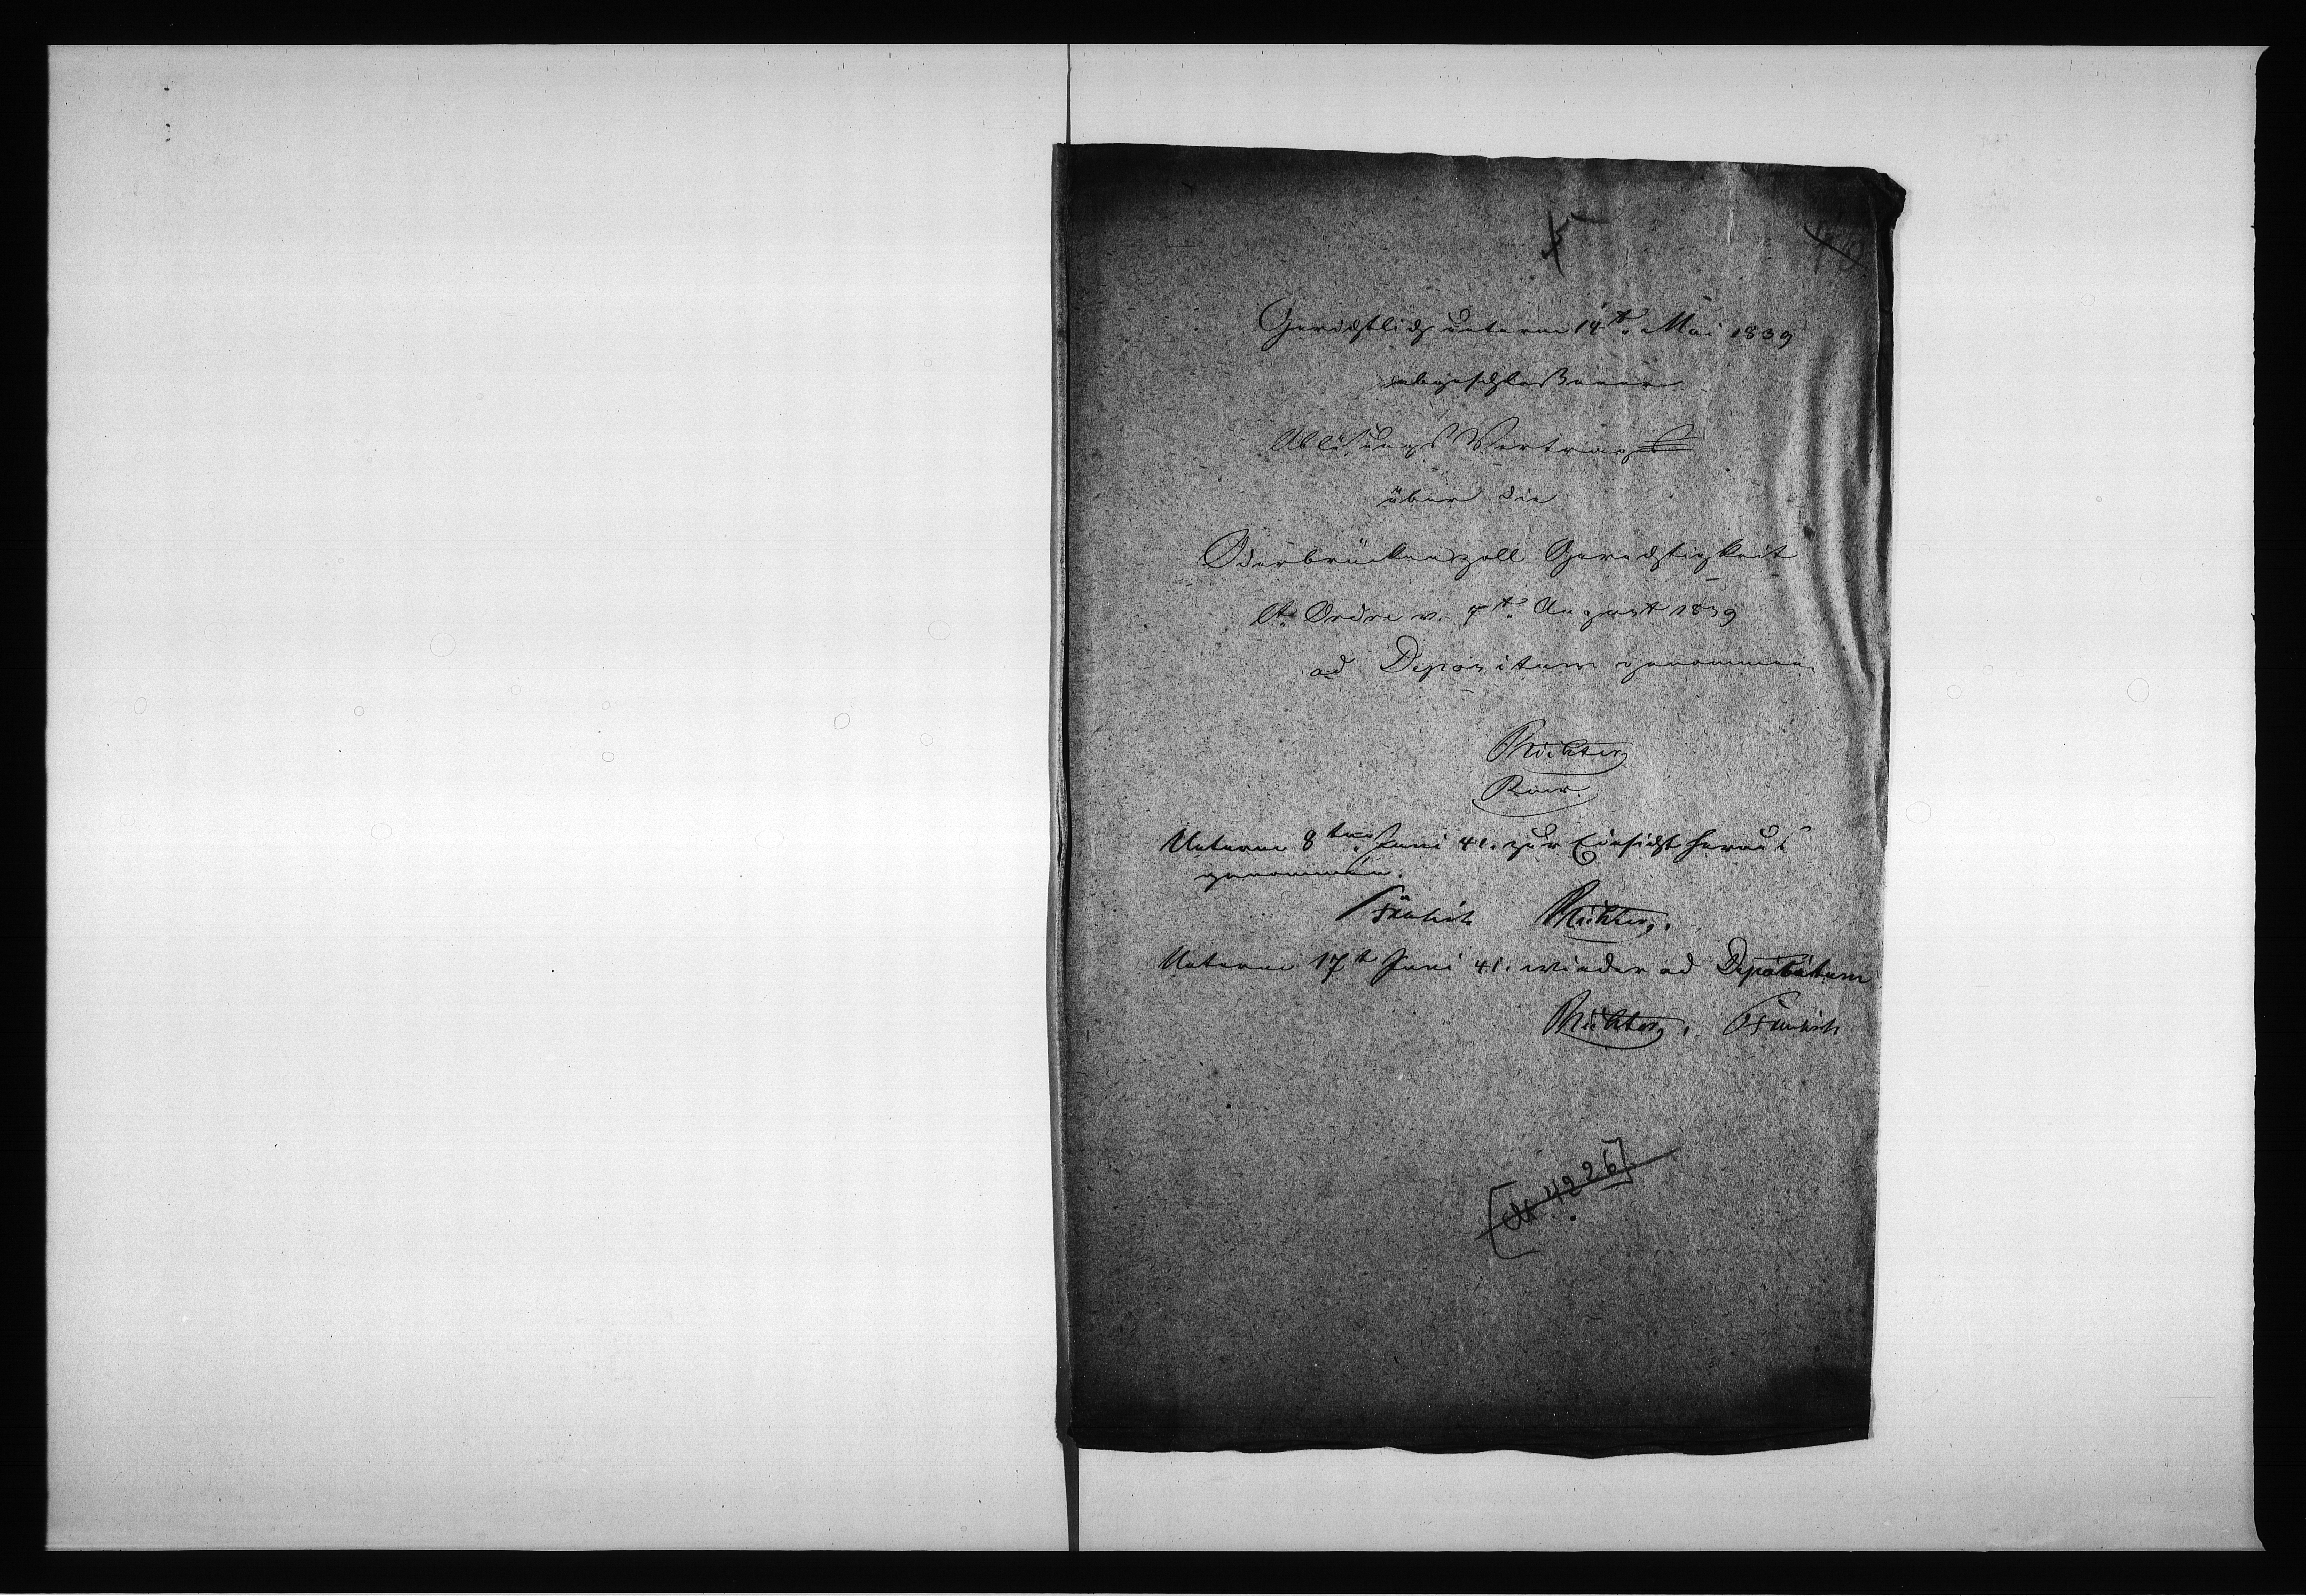 Gerichtlich unterm 14t. Mai 1839
abgeschloßener
Ablösungs Vertrag
über die
Oderbrückenzoll Gerechtigkeit
lt. Ordre v. 7t. August 1839
ad Depositum genommen
Richter
Unterm 8ten Juni 41. zur Einsicht heraus
genommen.
Richter.
Unterm 17t Juni 41. wieder ad Depositum
Richter.
[No 4226]